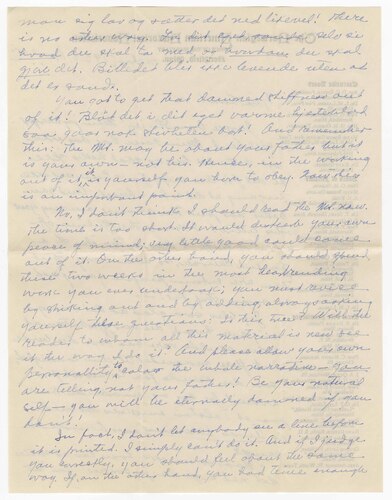 man sig lov og sætter det ned likevel! There
is no other way. La dit eget selv si
hvad du skal ta med og hvordan du skal
gjøre det. Billedet blir ikke levende uten at
det er sandt.
You got to get that damned stiffness out
of it! Blöt det i dit eget varme hjerteblod
saa gaar nok stivheten bort! And remember
this: The Ms. may be about your father but it
is your own — not his. Hence, in the working
out of it it is yourself you have to obey. Now this
is an important point.
No, I don't think I should read the Ms. now.
The time is too short. It would disturb your own
peace of mind; very little good could come
out of it. On the other hand, you should spend
these two weeks in the most heartrending
work you ever underwent; you must revise
by striking out and by adding, always asking
yourself these questions: Is this true? Will the
reader to whom all this material is new see
it the way I do? And please allow your own
personality to color the whole narrative — You
are telling, not your father! Be your natural
self — you will be eternally damned if you
don't!
In fact, I don't let anybody see a line before
it is printed. I simply can't do it. And if I judge
you correctly, you should feel about the same
way. If, on the other hand, you had time enough